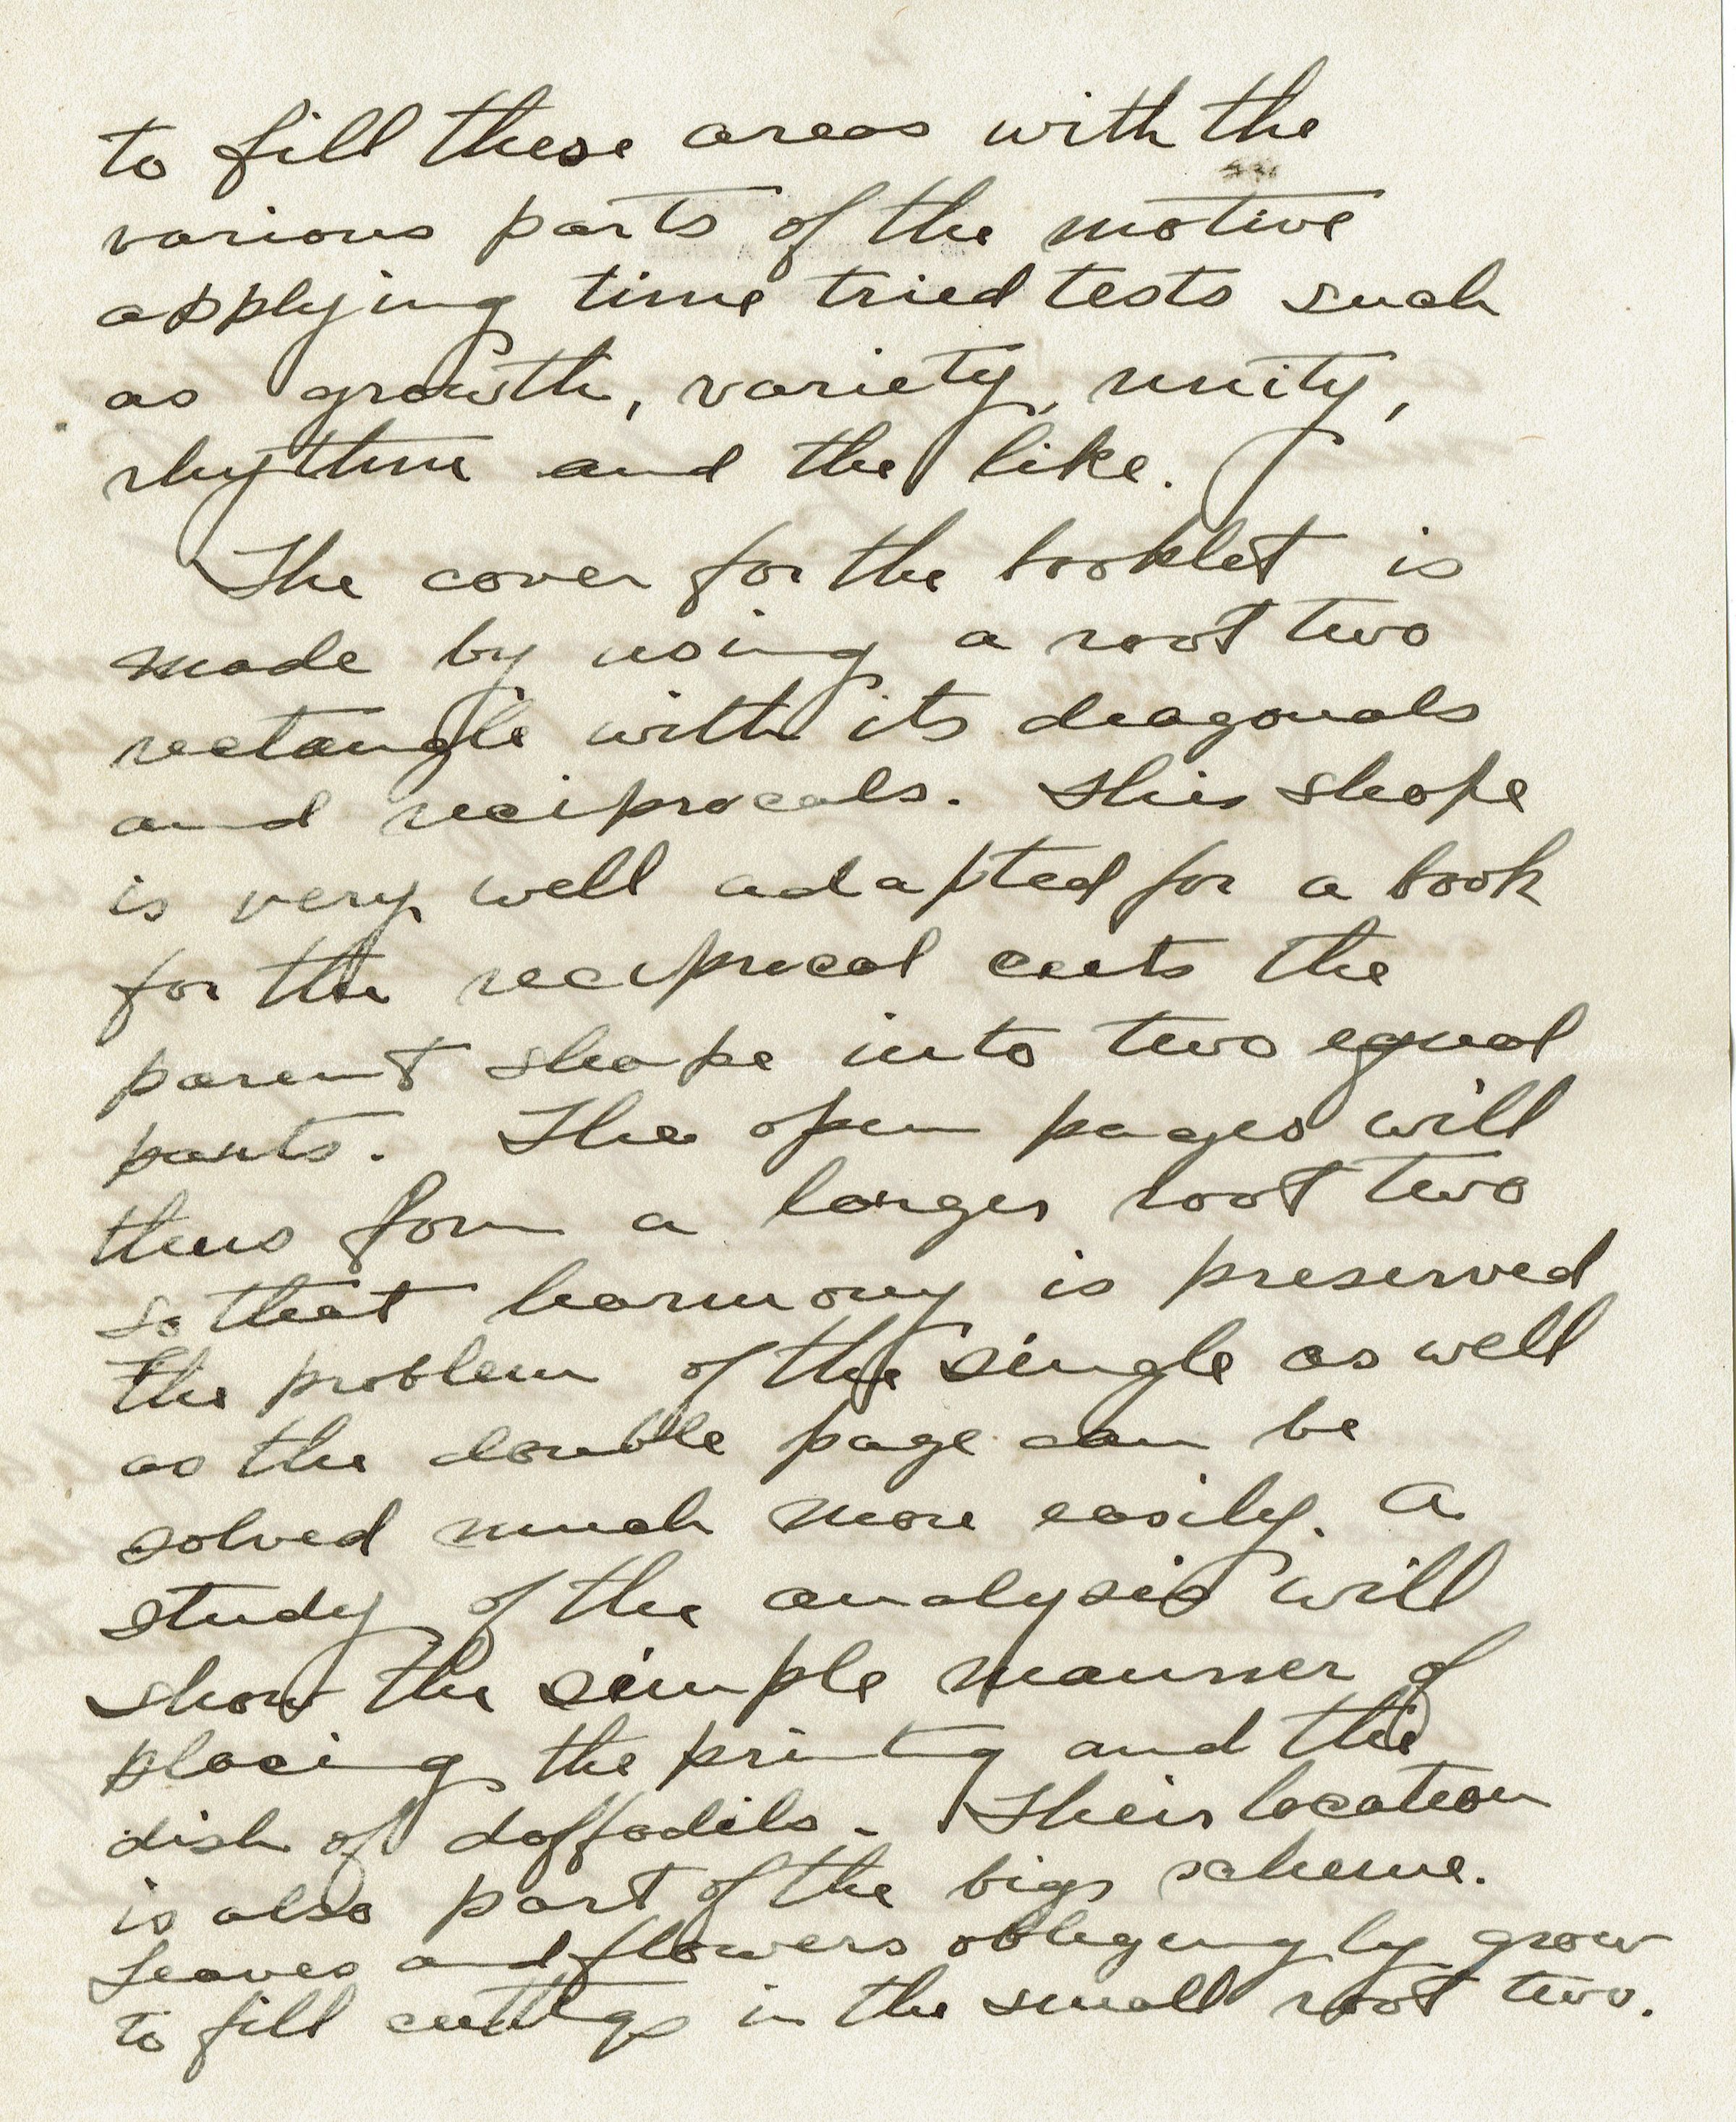 to fill these areas with the
various parts of the motive
applying time tried tests such
as growth, variety, unity,
rhythm and the like.
The cover for the booklet is
made by using a root two
rectangle with its diagonals
and reciprocals. This shape
is very well adapted for a book
for the reciprocal cuts the
parent shape into two equal
parts. The open pages will
thus form a larger root two
so that harmony is preserved
the problem of the single as well
as the double page can be
solved much more easily. A
study of the analysis will
show the simple manner of
placing the printing and the
dish of daffodils. Their location
is also part of the big scheme.
Leaves and flowers obligingly grow
to fill cuttings in the small root two.